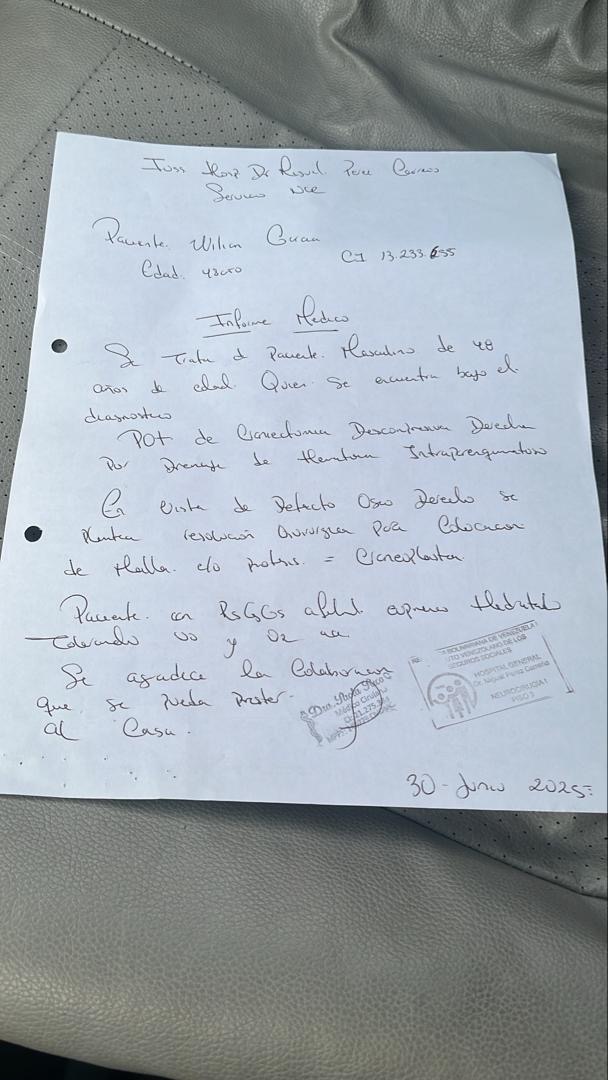 Servicio Nce
Paciente. Wilian
CI 13.233.655
Edad.
Informe Medico
Se Trata d Paciente. Masculino de 48
años de edad. Quien se encuentra bajo el.
diagnostico
POT de Cranectomia Descompresiva Derecha
Por Drenaje de Hematoma Intraparenquimatoso
En vista de Defecto Oseo Derecho se
Plantea resolucion Quirurgica para Colocacion
de Malla. c/o protesis = Craneoplastia.
Paciente. en afebril eupneico Hidratado
Tolerando VO y O2 aa.
Se agradece la Colaboracion
que se pueda prestar.
al Caso.
BOLIVARIANA DE VENEZUELA
VENEZOLANO DE LOS
SEGUROS SOCIALES
HOSPITAL GENERAL
Dr. Miguel Pérez Carreño
NEUROCIRUGIA I
PISO 5
Médico Cirujano
30 - Junio 2025